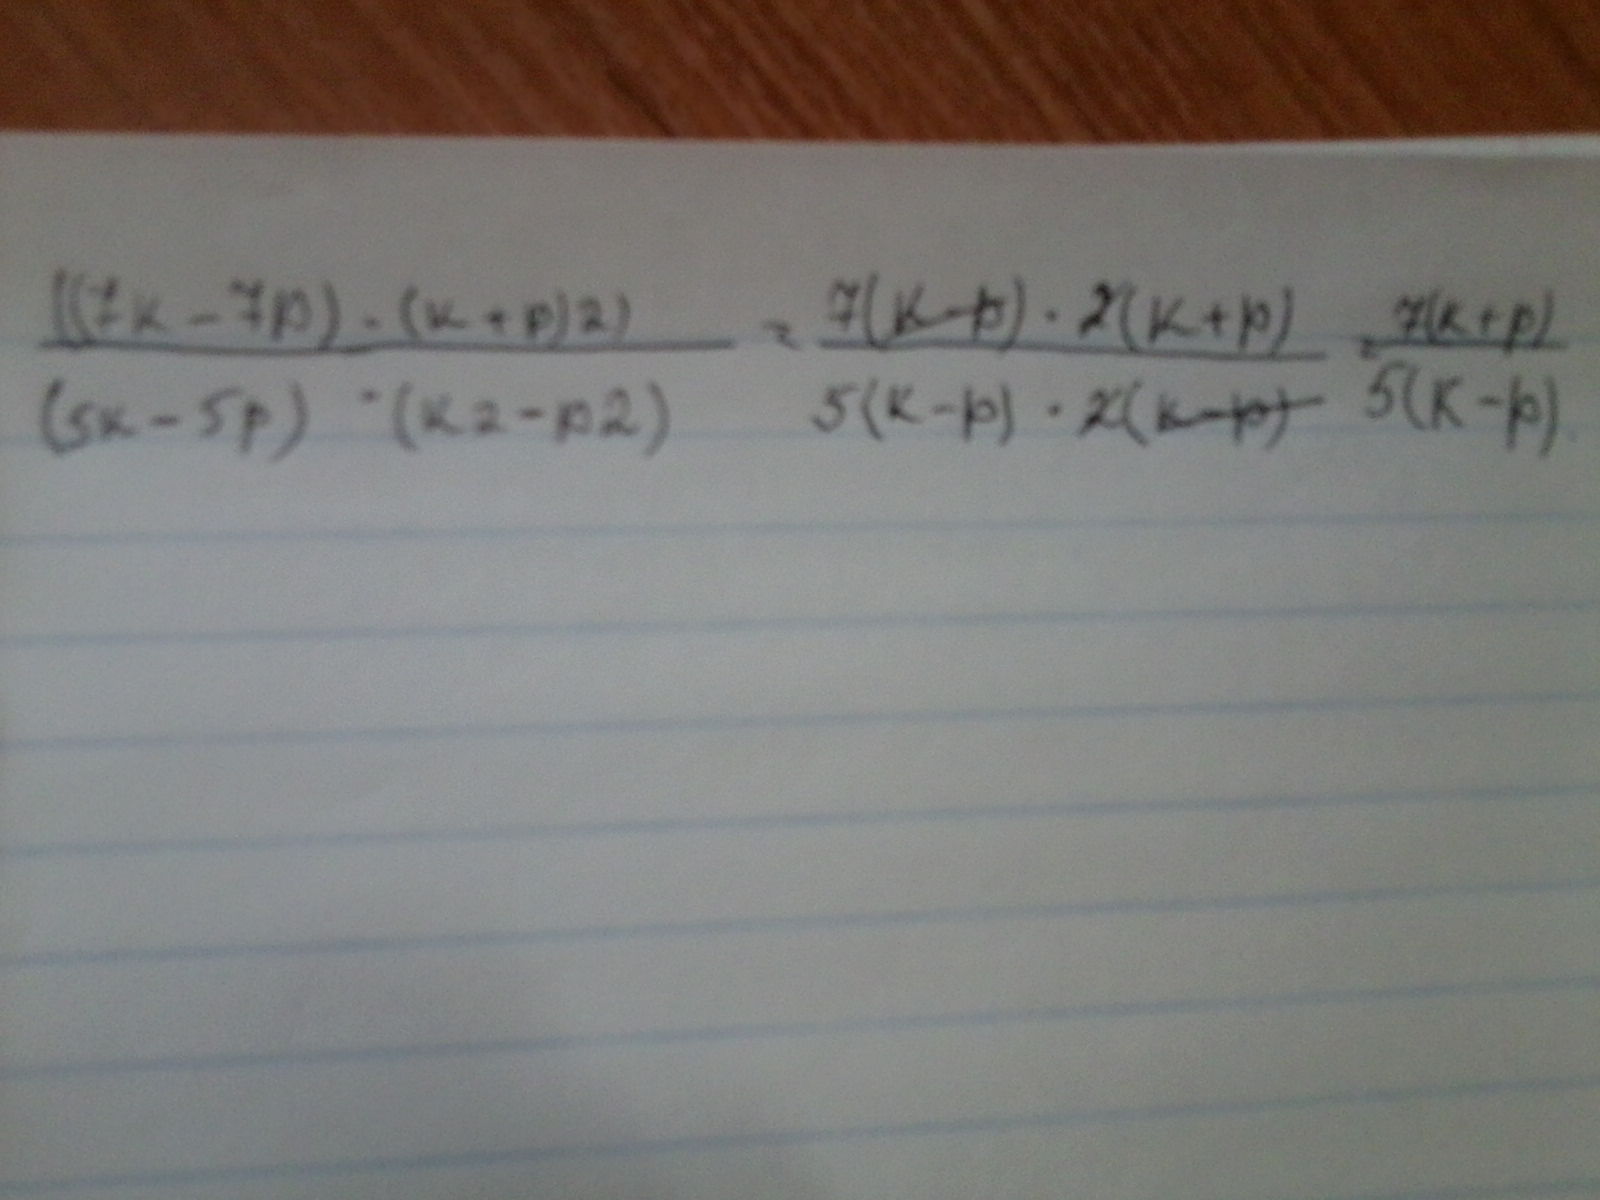 ((7k-7p)·(k+p)2) / (5k-5p)·(k2-p2) = 7(k-p)·2(k+p) / 5(k-p)·2(k-p) = 7(k+p) / 5(k-p).